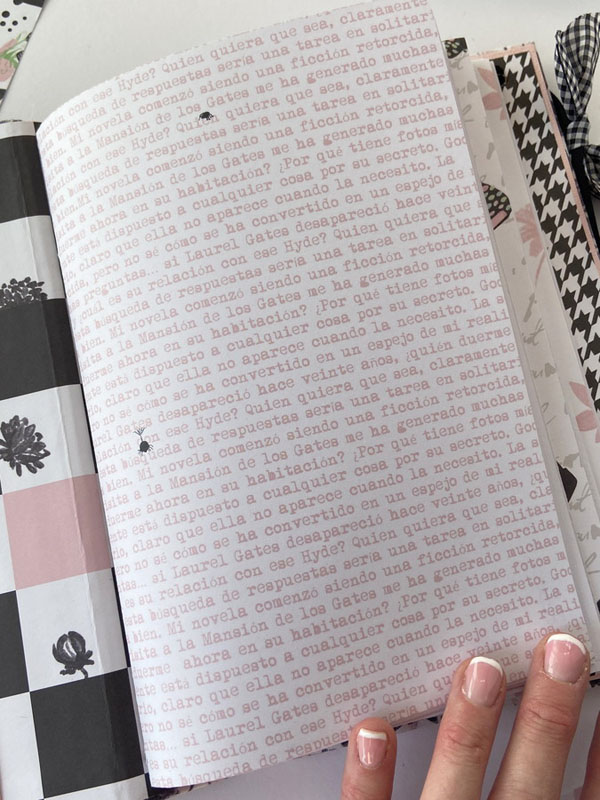 con ese Hyde? Quien quiera que sea, claramente
búsqueda de respuestas sería una tarea en solitari
bien. Mi novela comenzó siendo una ficción retorcida,
sita a la Mansión de los Gates me ha generado muchas
lación con ese Hyde? Quien quiera que sea, claramente
sta búsqueda de respuestas sería una tarea en solitari
bien. Mi novela comenzó siendo una ficción retorcida,
sita a la Mansión de los Gates me ha generado muchas
uerme ahora en su habitación? ¿Por qué tiene fotos mí
nte está dispuesto a cualquier cosa por su secreto. Goo
rio, claro que ella no aparece cuando la necesito. La
cida, pero no sé cómo se ha convertido en un espejo de
as preguntas... si Laurel Gates desapareció hace veint
cuál es su relación con ese Hyde? Quien quiera que
sta búsqueda de respuestas sería una tarea en solitari
bien. Mi novela comenzó siendo una ficción retorcida,
sita a la Mansión de los Gates me ha generado muchas
uerme ahora en su habitación? ¿Por qué tiene fotos mía
nte está dispuesto a cualquier cosa por su secreto. Goo
rio, claro que ella no aparece cuando la necesito. La s
ro no sé cómo se ha convertido en un espejo de mi reali
Laurel Gates desapareció hace veinte años, ¿quién duerme
lación con ese Hyde? Quien quiera que sea, claramente
sta búsqueda de respuestas sería una tarea en solitari
bien. Mi novela comenzó siendo una ficción retorcida,
sita a la Mansión de los Gates me ha generado muchas
uerme ahora en su habitación? ¿Por qué tiene fotos mía
nte está dispuesto a cualquier cosa por su secreto. Goo
rio, claro que ella no aparece cuando la necesito. La s
ro no sé cómo se ha convertido en un espejo de mi reali
tas... si Laurel Gates desapareció hace veinte años, ¿qu
es su relación con ese Hyde? Quien quiera que sea, cla
sta búsqueda de respuestas sería una tarea en solitari
bien. Mi novela comenzó siendo una ficción retorcida,
sita a la Mansión de los Gates me ha generado muchas
duerme ahora en su habitación? ¿Por qué tiene fotos mí
nte está dispuesto a cualquier cosa por su secreto. Goo
rio, claro que ella no aparece cuando la necesito. La s
ro no sé cómo se ha convertido en un espejo de mi reali
tas... si Laurel Gates desapareció hace veinte años, qu
es su relación con ese Hyde? Quien quiera que se
sta búsqueda de respuestas sería una